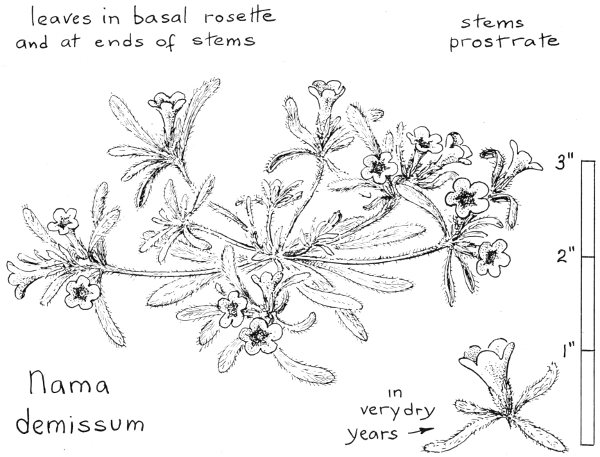 leaves in basal rosette
and at ends of stems
stems
prostrate
3"
2"
1"
Nama
demissum
in
very dry
years